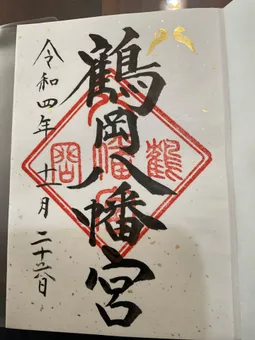 鶴岡八幡宮
令和四年 十一月 二十六日
鶴岡